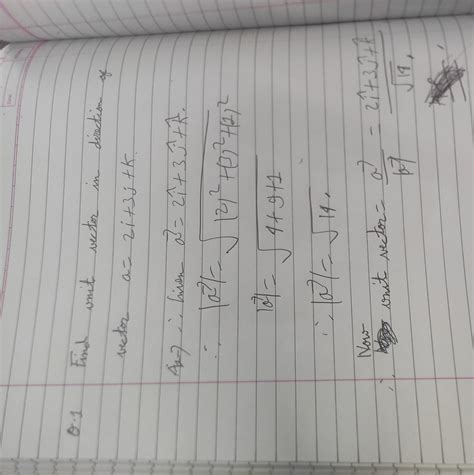 Q.1 Find unit vector in direction of
vector a = 2i+3j+k.
∴ Given a⃗ = 2î+3ĵ+k̂.
∴ |a⃗| = √(2)²+(3)²+(1)²
|a⃗| = √4+9+1
∴ |a⃗| = √14.
Now
∴ unit vector = a⃗/|a⃗| = 2î+3ĵ+k̂/√14.